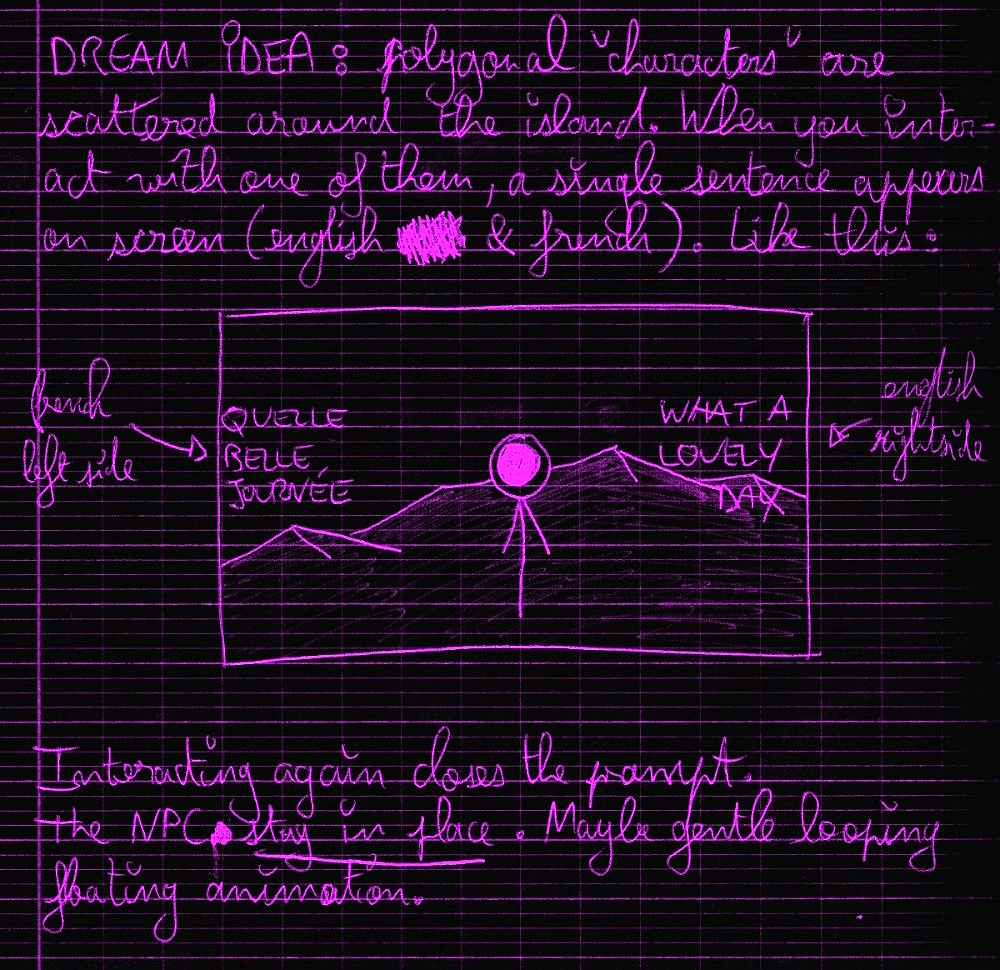 DREAM IDEA : polygonal "characters" are
scattered around the island. When you inter-
act with one of them, a single sentence appears
on screen (english & french). Like this :
french
left side
QUELLE
BELLE
JOURNÉE
WHAT A
LOVELY
DAY
english
rightside
Interacting again closes the prompt.
The NPC stay in place. Maybe gentle looping
floating animation.